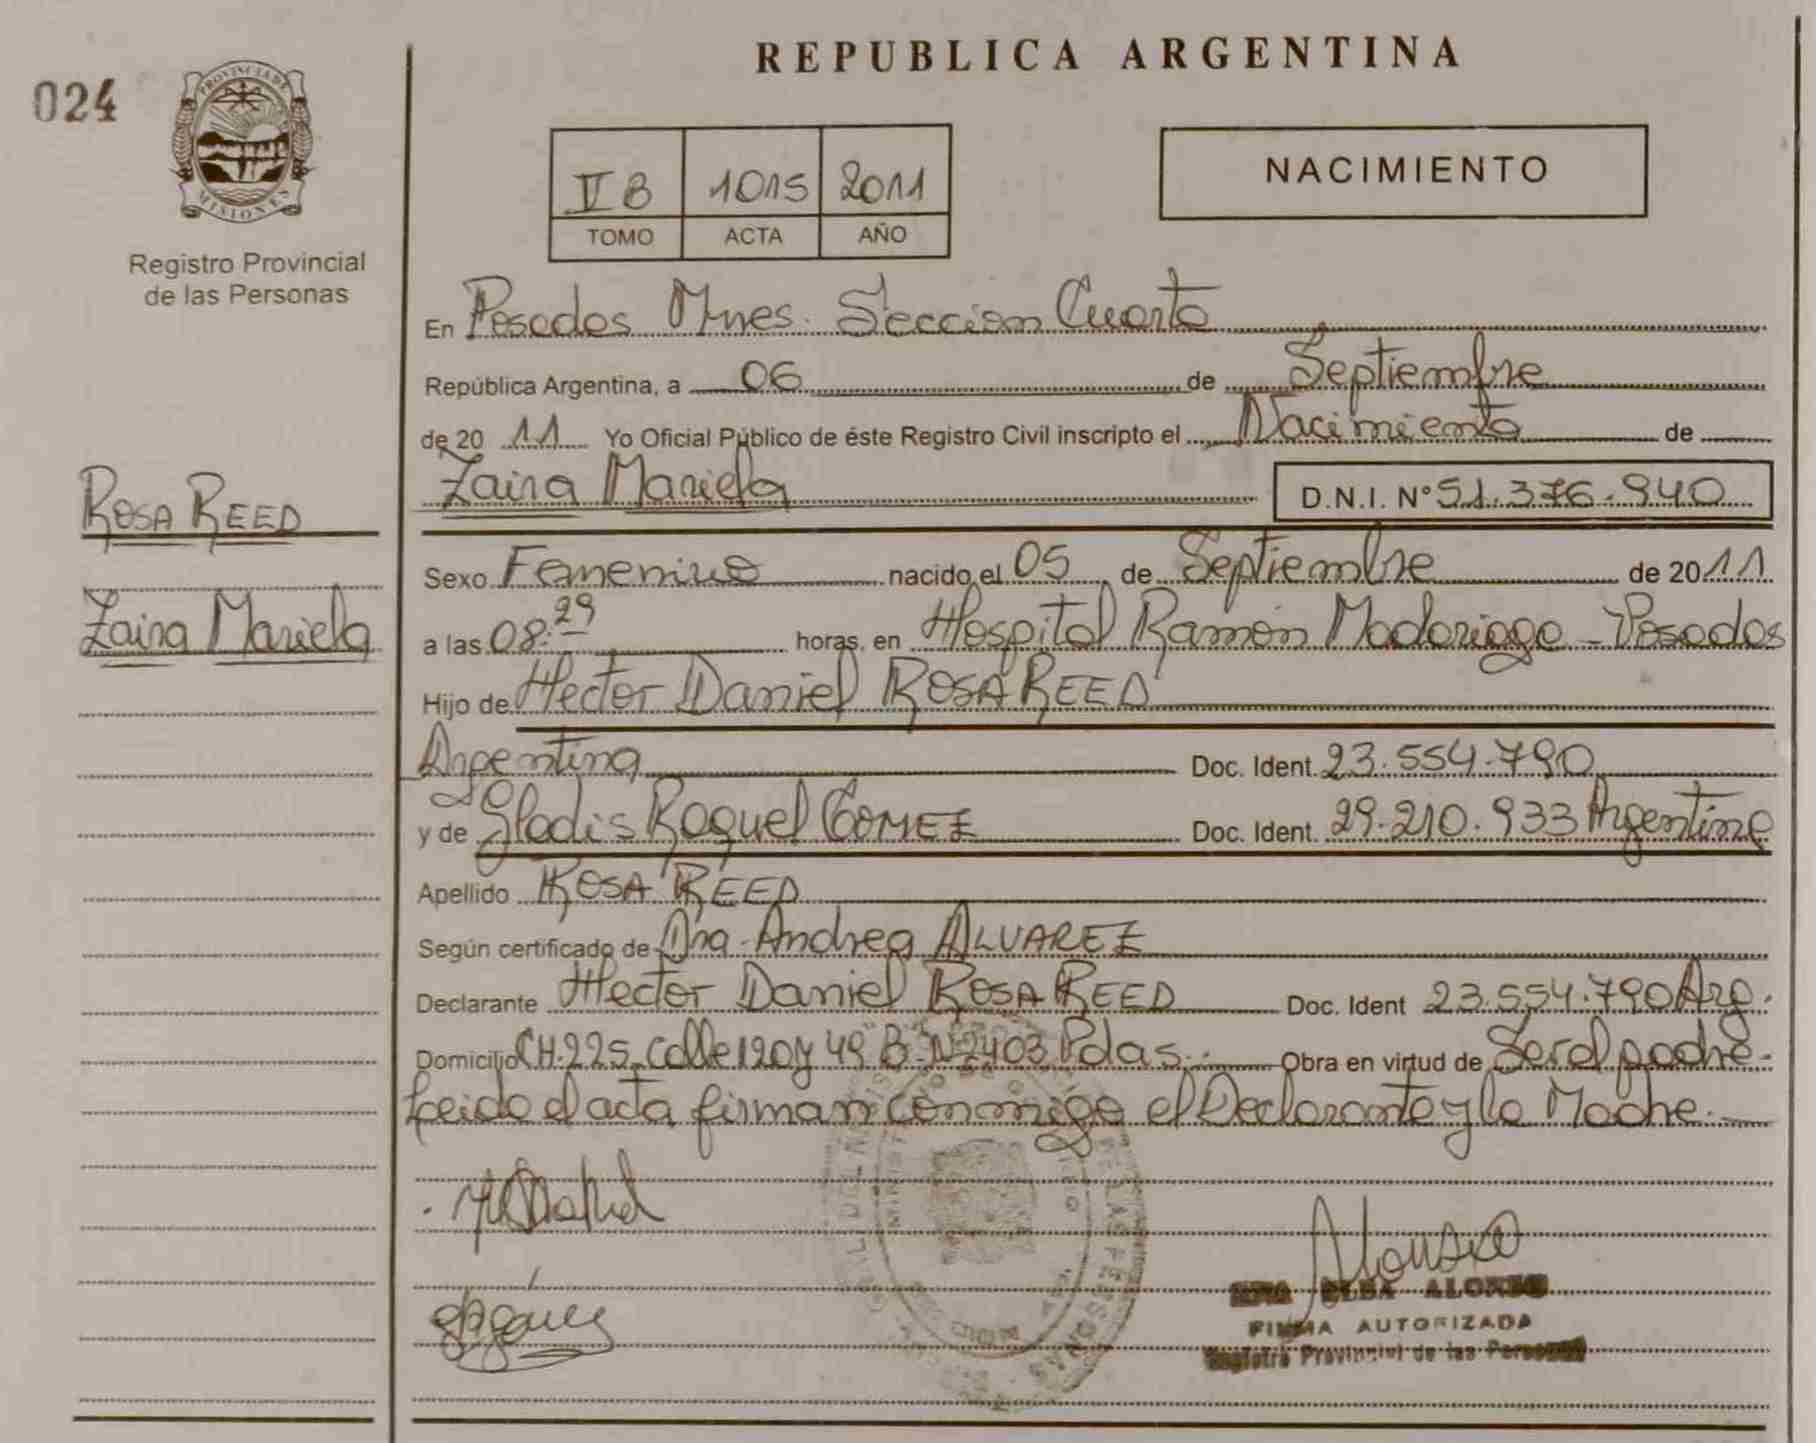 REPUBLICA ARGENTINA
024
PROVINCIA DE
MISIONES
Registro Provincial
de las Personas
NACIMIENTO
B 1015 2011
TOMO ACTA AÑO
En Posadas Mnes. Sección Cuarta
República Argentina, a 06 de Septiembre
de 20 11 Yo Oficial Público de éste Registro Civil inscripto el Nacimiento de
Zaira Mariela D.N.I. N° 51.376.940
ROSA REED
Zaira Mariela
Sexo Femenino nacido el 05 de Septiembre de 2011
a las 08:29 horas, en Hospital Ramón Madariaga - Posadas
Hijo de Hector Daniel ROSA REED
Argentina Doc. Ident. 23.554.790
y de Gladis Raquel GOMEZ Doc. Ident. 29.210.933 Argentina
Apellido ROSA REED
Según certificado de Dra. Andrea ALVAREZ
Declarante Hector Daniel ROSA REED Doc. Ident 23.554.790 Arg.
Domicilio CH.225 calle 120 y 49 B N° 2403 Pdas. Obra en virtud de Ser el padre.
Leida el acta firman conmigo el Declarante y la Madre.
ELBA ALONSO
FIRMA AUTORIZADA
Registro Provincial de las Personas